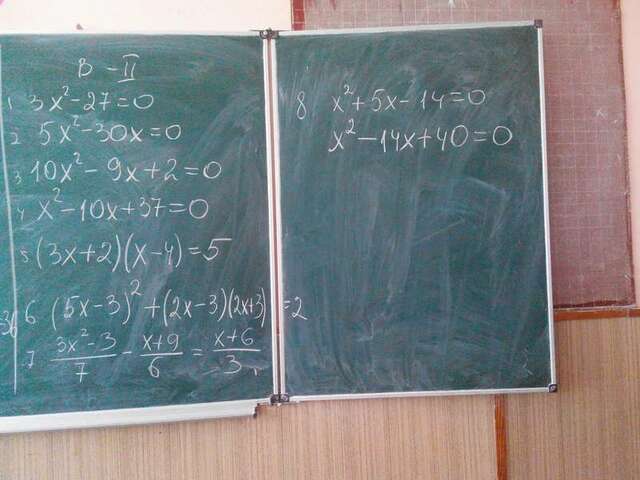 B - II
1 3x²-27=0
2 5x²-30x=0
3 10x²-9x+2=0
4 x²-10x+37=0
5 (3x+2)(x-4)=5
6 (5x-3)²+(2x-3)(2x+3)=2
7 (3x²-3)/7 - (x+9)/6 = (x+6)/3
8 x²+5x-14=0
x²-14x+40=0